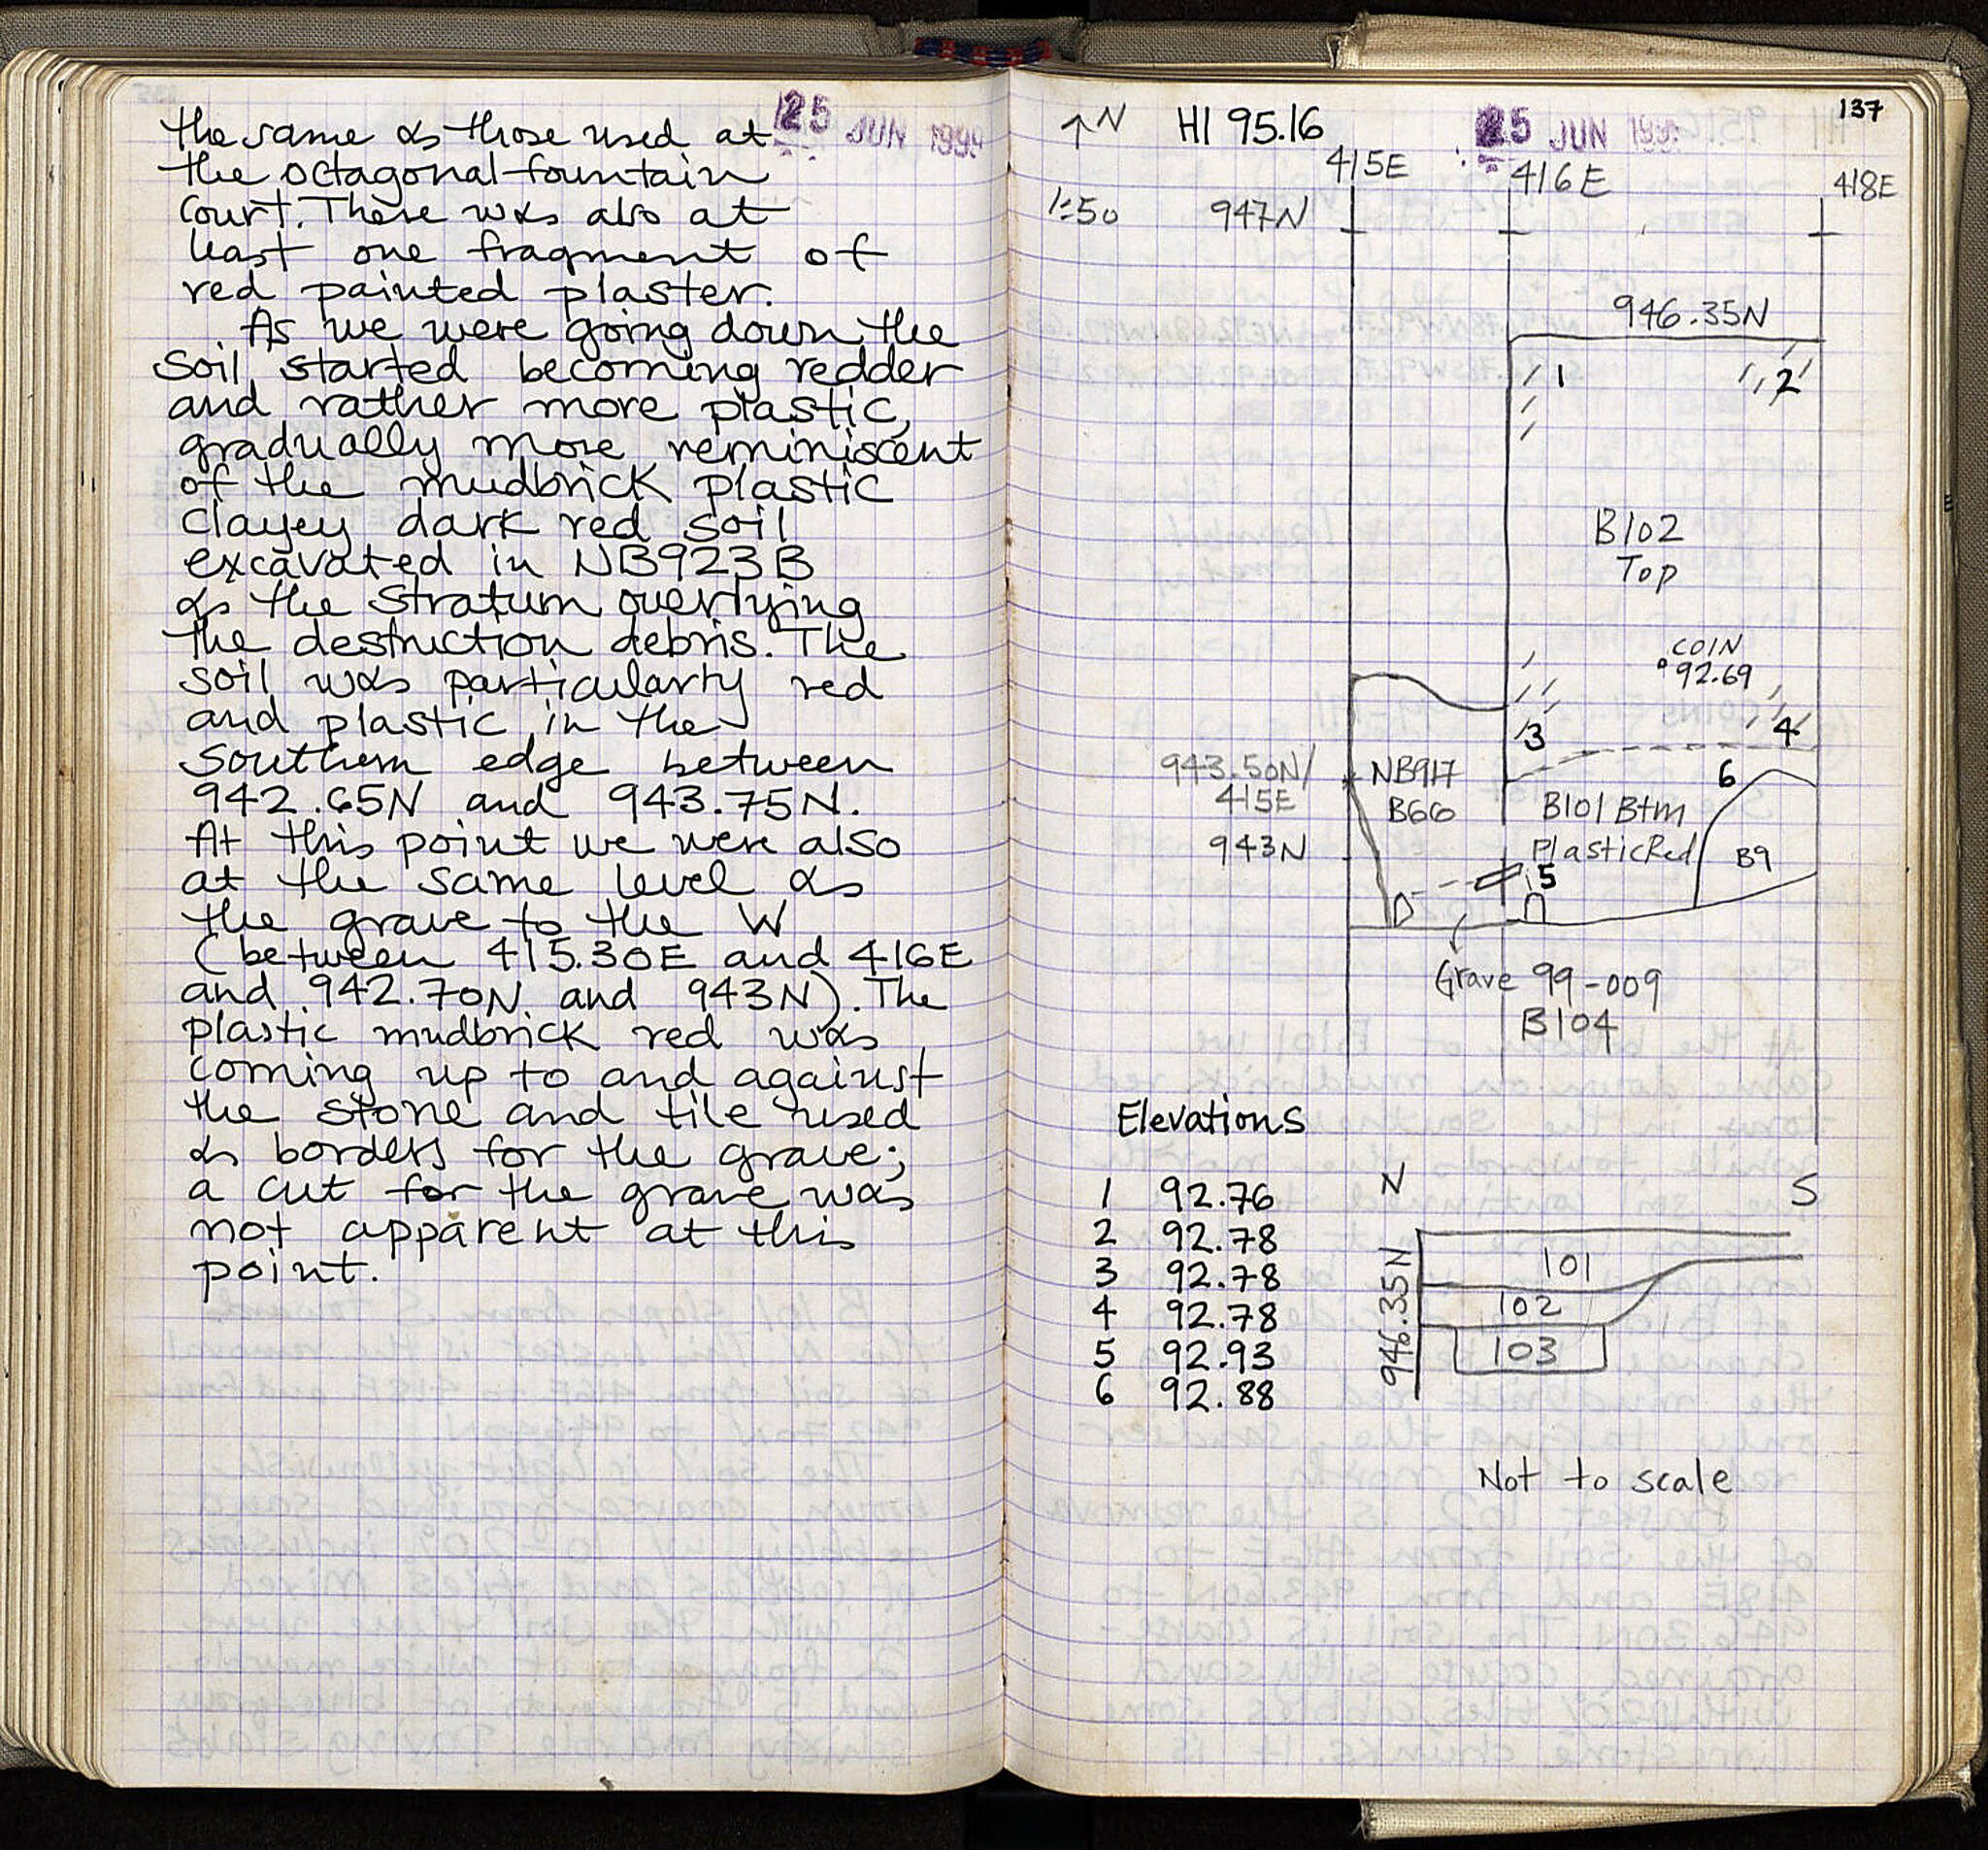 25 JUN 1999
the same as those used at
the octagonal fountain
court. There was also at
least one fragment of
red painted plaster.
As we were going down the
soil started becoming redder
and rather more plastic,
gradually more reminiscent
of the mudbrick plastic
clayey dark red soil
excavated in NB923B
as the stratum overlying
the destruction debris. The
soil was particularly red
and plastic in the
southern edge between
942.65N and 943.75N.
At this point we were also
at the same level as
the grave to the W
(between 415.30E and 416E
and 942.70N and 943N). The
plastic mudbrick red was
coming up to and against
the stone and tile used
as borders for the grave;
a cut for the grave was
not apparent at this
point.
137
↑N HI 95.16 25 JUN
415E 416E 418E
1:50 947N
946.35N
1 2
B102
Top
COIN
92.69
3 4
943.50N/
415E
NB917
B66
6
B101 Btm
Plastic Red
B9
943N
5
Grave 99-009
B104
Elevations
1 92.76
2 92.78
3 92.78
4 92.78
5 92.93
6 92.88
N S
946.35N
101
102
103
Not to scale